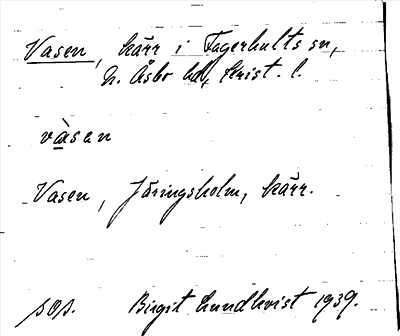 Vasen, kärr i Fagerhults sn,
N. Åsbo hd, Krist. l.
vàsen
Vasen, Järingsholm, kärr.
sos. Birgit Lundkvist 1939.